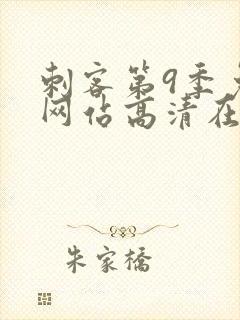 刺客第9季
网佔高清在
朱家橋